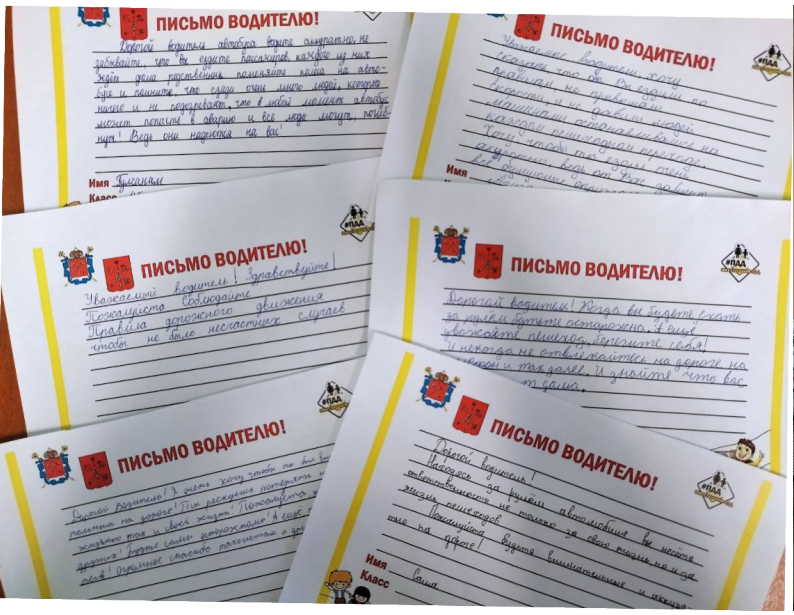 ПИСЬМО ВОДИТЕЛЮ!
Дорогой водитель автобуса водите аккуратно, не
забывайте, что вы ездите пассажиров, каждого из них
ждёт дома
на авто-
бусе и помните, что сзади очень много людей, которые
ничего и не подозревают, что в любой момент автобус
может попасть в аварию и все люди могут, погиб-
нуть! Ведь они надеятся на вас!
Имя Гулсаням
Класс
ПИСЬМО ВОДИТЕЛЮ!
#ПДД
Уважаемые водители, хочу
сказать что бы Вы ездили со
скорости, и не давили людей
машинами останавливайся на
каждом пешеходном переходе
Хочу чтобы ты ездил очень
аккуратно ведь от Вас зависит
Имя
Класс
ПИСЬМО ВОДИТЕЛЮ!
#ПДД
Уважаемый водитель! Здравствуйте!
Пожалуйста Соблюдайте
Правила дорожного движения
чтобы не было несчастных случаев
ПИСЬМО ВОДИТЕЛЮ!
#ПДД
Дорогой водитель! Когда вы будете ехать
за рулём будьте осторожны. А ещё
уважайте пешеход, берегите себя!
И некогда не отвлекайтесь на дороге на
и так далее. И знайте что вас
дома.
ПИСЬМО ВОДИТЕЛЮ!
#ПДД
Дорогой Водитель! Я хочу чтобы ты был
на дороге! Ты рискуешь потерять
жизнью так и своей жизни! Пожалуйста
других! Будте самы осторожны! А еще
Огромное спасибо таксистам и
ПИСЬМО ВОДИТЕЛЮ!
#ПДД
Дорогой водитель!
Находясь за рулём автомобиля вы несёте
ответственность не только за свою жизнь но и за
жизнь пешеходов
Пожалуйста будьте внимательные и аккура-
тно на дороге!
Имя
Класс
Саша